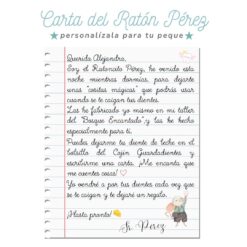 Carta del Ratón Pérez
personalízala para tu peque
Querida Alejandra,
Soy el Ratoncito Pérez, he venido esta
noche mientras dormías, para dejarte
unas "cositas mágicas" que podrás usar
cuando se te caigan tus dientes.
Las he fabricado yo mismo en mi taller
del "Bosque Encantado" y las he hecho
especialmente para ti.
Puedes dejarme tu diente de leche en el
bolsillo del Cojín Guardadientes y
escribirme una carta. ¡Me encanta que
me cuentes cosas!
Yo vendré a por tus dientes cada vez que
se te caigan y te dejaré un regalo.
¡Hasta pronto!
Sr. Pérez